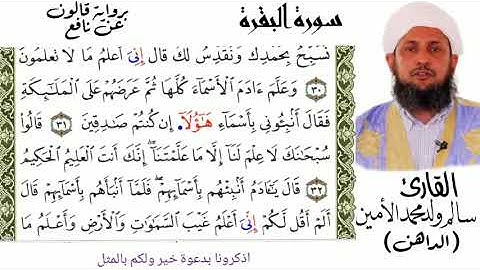 برواية قالون
عن نافع
سورة البقرة
نُسَبِّحُ بِحَمْدِكَ وَنُقَدِّسُ لَكَ قَالَ إِنِّىَ أَعْلَمُ مَا لَا تَعْلَمُونَ
٣٠ وَعَلَّمَ ءَادَمَ اَلْأَسْمَآءَ كُلَّهَا ثُمَّ عَرَضَهُمْ عَلَى اَلْمَلَٰٓئِكَةِ
فَقَالَ أَنۢبِـُٔونِى بِأَسْمَآءِ هَٰٓؤُلَآ. إِن كُنتُمْ صَٰدِقِينَ ٣١ قَالُوا۟
سُبْحَٰنَكَ لَا عِلْمَ لَنَآ إِلَّا مَا عَلَّمْتَنَآ إِنَّكَ أَنتَ اَلْعَلِيمُ اُلْحَكِيمُ
٣٢ قَالَ يَٰٓـَٔادَمُ أَنۢبِئْهُم بِأَسْمَآئِهِمْ فَلَمَّآ أَنۢبَأَهُم بِأَسْمَآئِهِمْ قَالَ
أَلَمْ أَقُل لَّكُمْ إِنِّىَ أَعْلَمُ غَيْبَ اَلسَّمَٰوَٰتِ وَالْأَرْضِ وَأَعْلَمُ مَا
القارئ
سالم ولد محمد الأمين
(الداهن)
اذكرونا بدعوة خير ولكم بالمثل